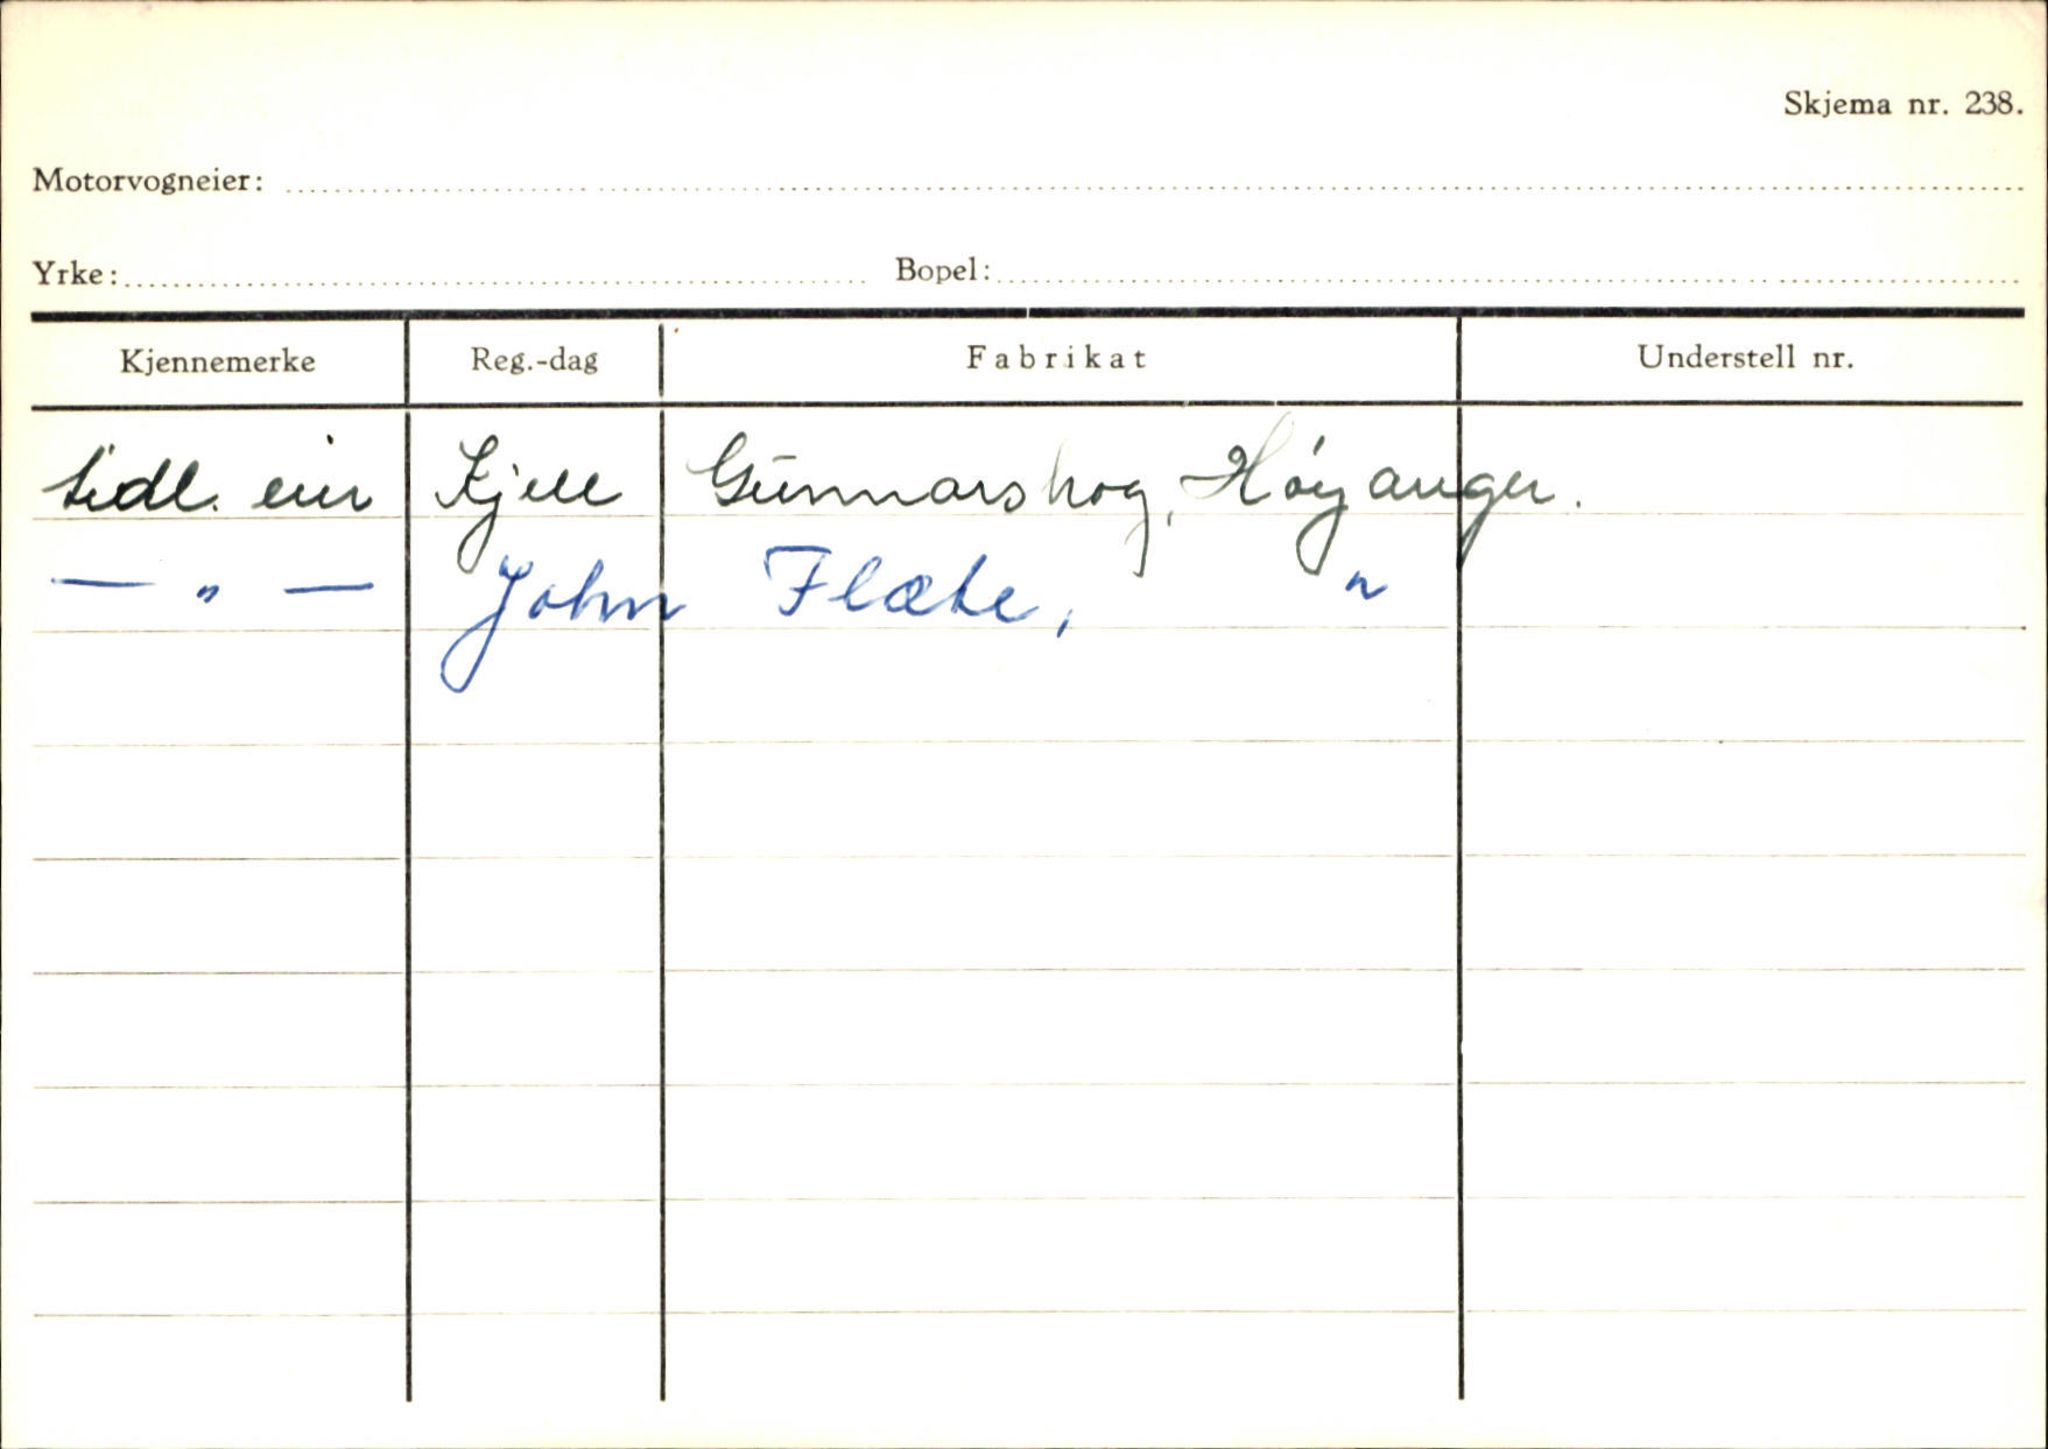 Skjema nr. 238.
Motorvogneier:
Yrke: Bopel:
Kjennemerke Reg.-dag Fabrikat Understell nr.
tidl. eier Kjell Gunnarskog, Høyanger.
— " — John Flæte, "